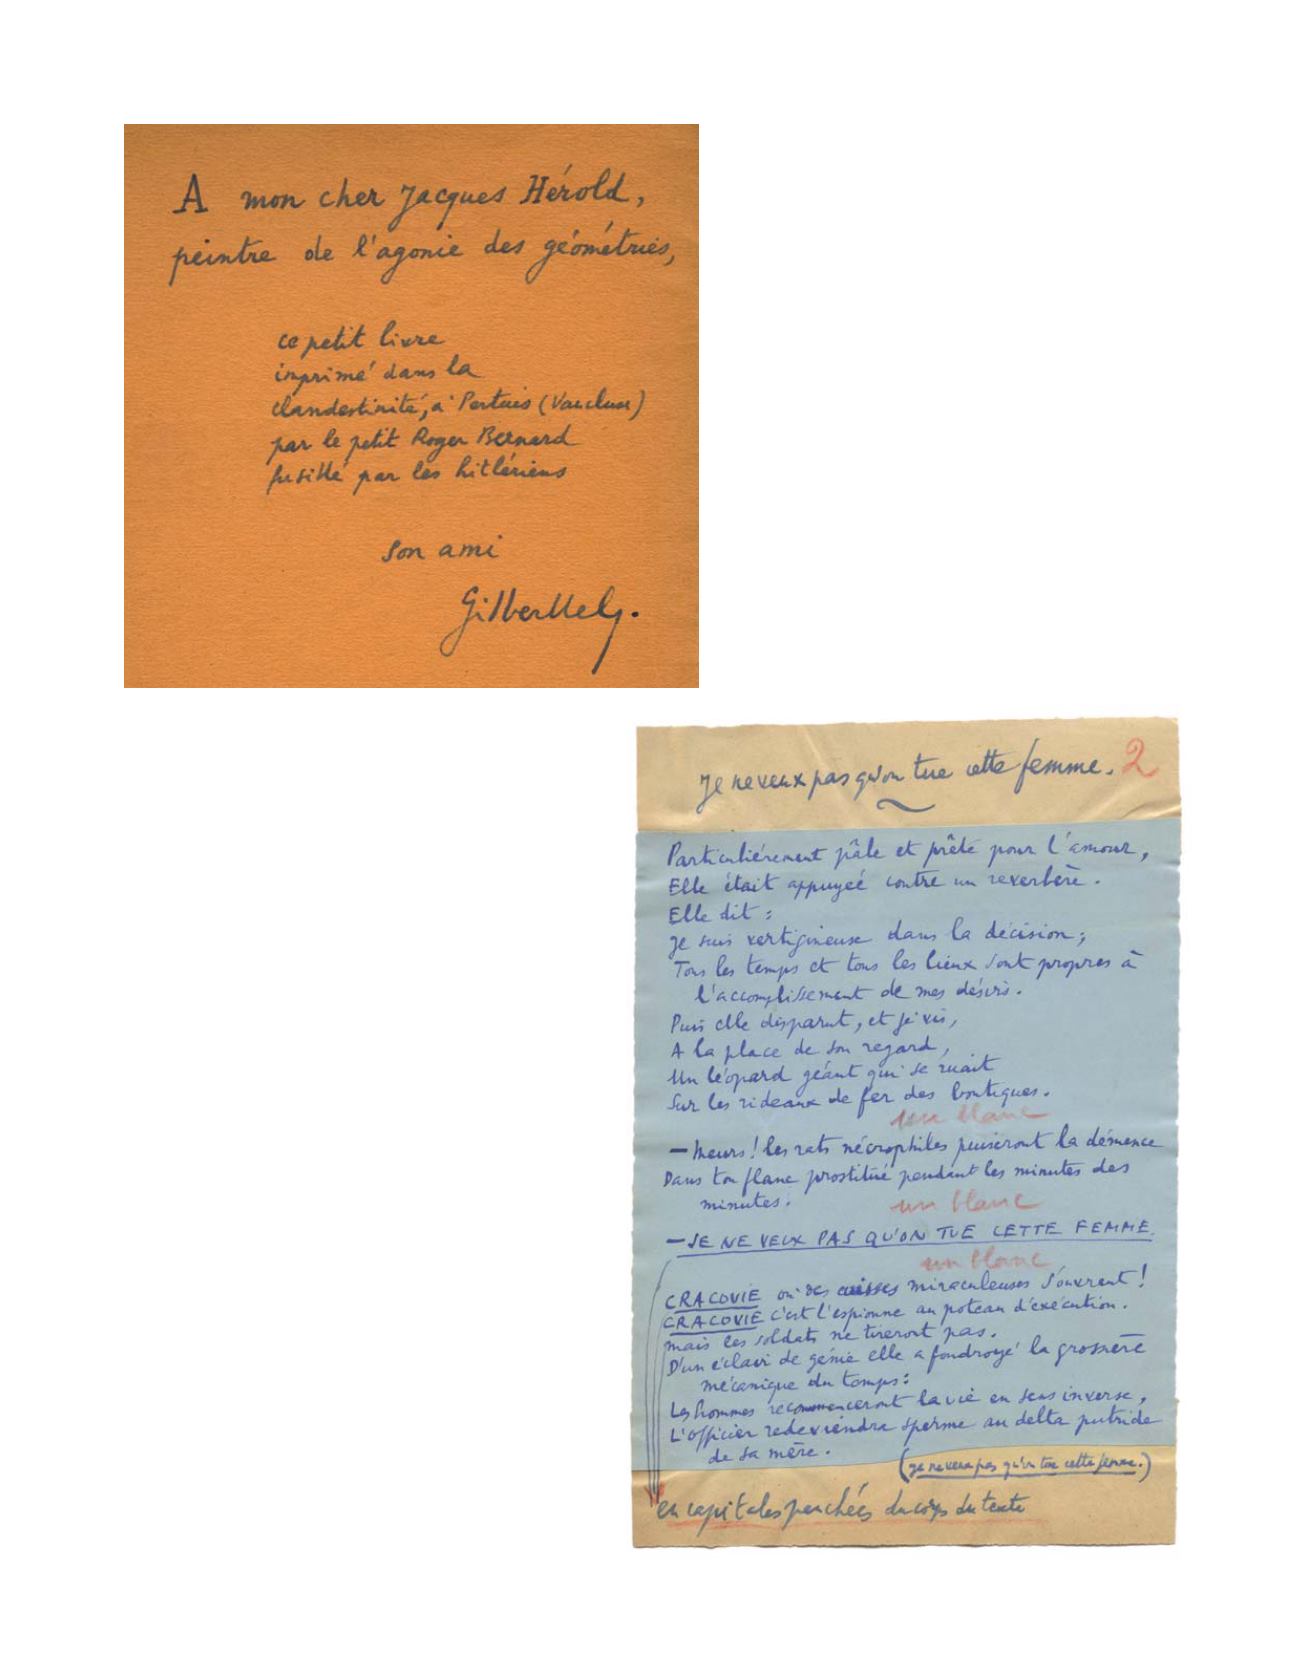 A mon cher Jacques Hérold,
peintre de l'agonie des géométries,
ce petit livre
imprimé dans la
clandestinité, à Pertuis (Vaucluse)
par le petit Roger Bernard
fusillé par les hitlériens
son ami
Gilbert Lely.
Je ne veux pas qu'on tue cette femme. 2
Particulièrement pâle et prête pour l'amour,
Elle était appuyée contre un reverbère.
Elle dit :
Je suis vertigineuse dans la décision ;
Tous les temps et tous les lieux sont propres à
l'accomplissement de mes désirs.
Puis elle disparut, et je vis,
A la place de son regard,
Un léopard géant qui se ruait
Sur les rideaux de fer des boutiques.
un blanc
— Meurs ! les rats nécrophiles puiseront la démence
Dans ton flanc prostitué pendant les minutes des
minutes.
un blanc
— JE NE VEUX PAS QU'ON TUE CETTE FEMME.
un blanc
CRACOVIE où des cuisses miraculeuses s'ouvrent !
CRACOVIE c'est l'espionne au poteau d'exécution.
mais les soldats ne tireront pas.
D'un éclair de génie elle a foudroyé la grossière
mécanique du temps :
Les hommes recommenceront la vie en sens inverse,
L'officier redeviendra sperme au delta putride
de sa mère.
(Je ne veux pas qu'on tue cette femme.)
en capitales penchées du corps du texte